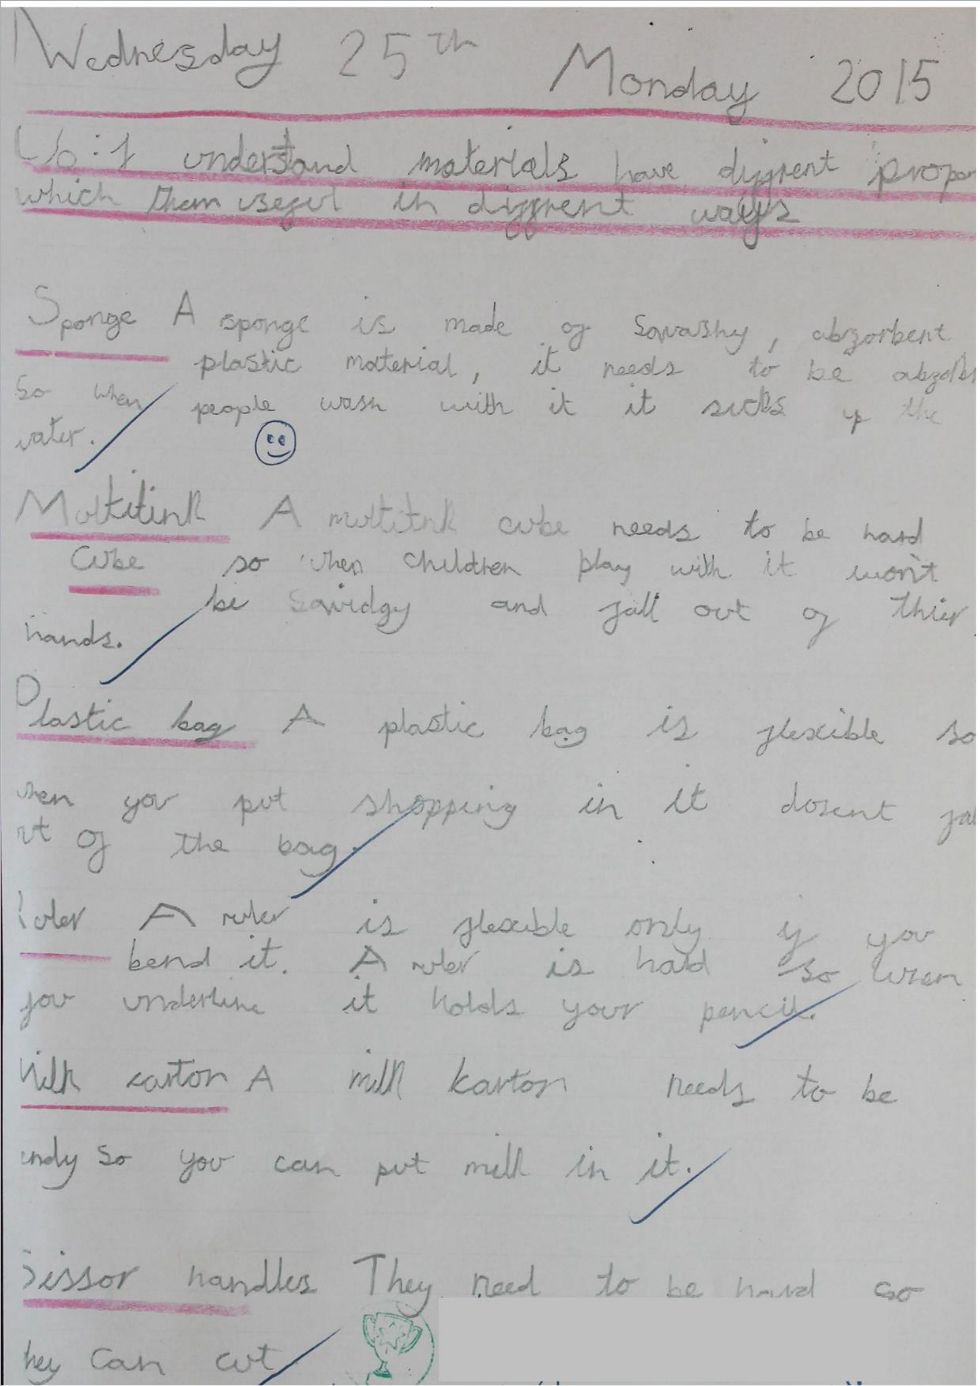 Wednesday 25th Monday 2015
Wo:1 understand materials have diffrent proper
which them useful in diffrent ways
Sponge A sponge is made of Sqwashy, abzorbent
plastic material, it needs to be abzorb
So when people wash with it it sucks up the
water.
Multilink A multilnk cube needs to be hard
Cube so when children play with it won't
be Sqwidgy and fall out of thier
hands.
Plastic bag A plastic bag is flexible so
when you put shopping in it dosent fal
ut of the bag.
Ruler A ruler is flexible only if you
bend it. A ruler is hard so when
you underline it holds your pencil.
Milk carton A milk karton needs to be
endy so you can put milk in it.
Sissor handles They need to be hard so
they can cut